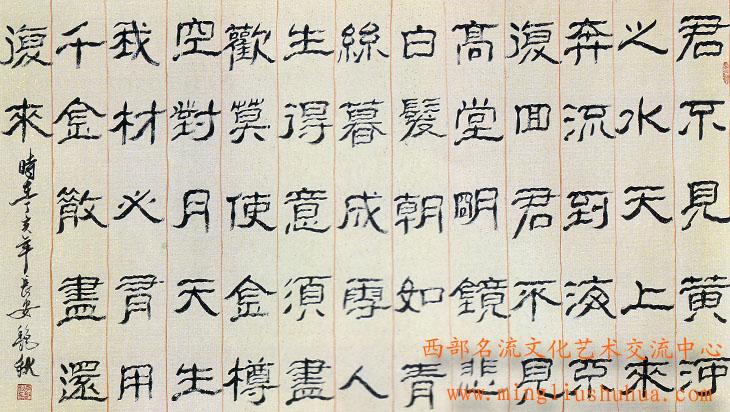 君不見黄河
之水天上來
奔流到海不
復回君不見
高堂明鏡悲
白髮朝如青
絲暮成雪人
生得意須盡
歡莫使金樽
空對月天生
我材必有用
千金散盡還
復來
時在丁亥年長安
西部名流文化艺术交流中心
www.mingliushuhua.com